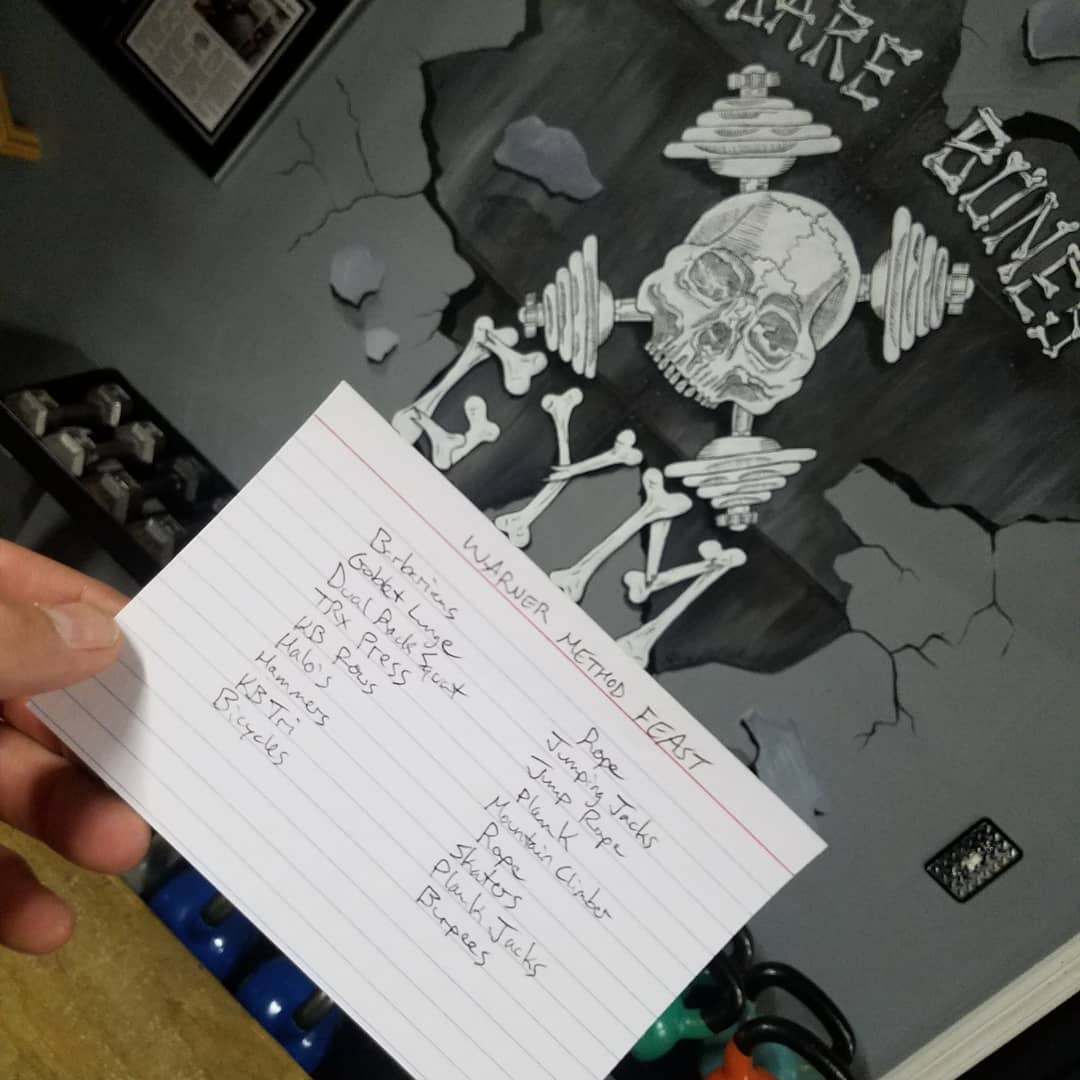 BARE
BONES
GYM
WARNER METHOD FEAST
Barbarians
Goblet Lunge
Dual Rack Squat
TRX PRESS
KB Rows
Halo's
Hammers
KB Tri
Bicycles
Rope
Jumping Jacks
Jump Rope
Plank
Mountain Climber
Rope
Skaters
Plank Jacks
Burpees